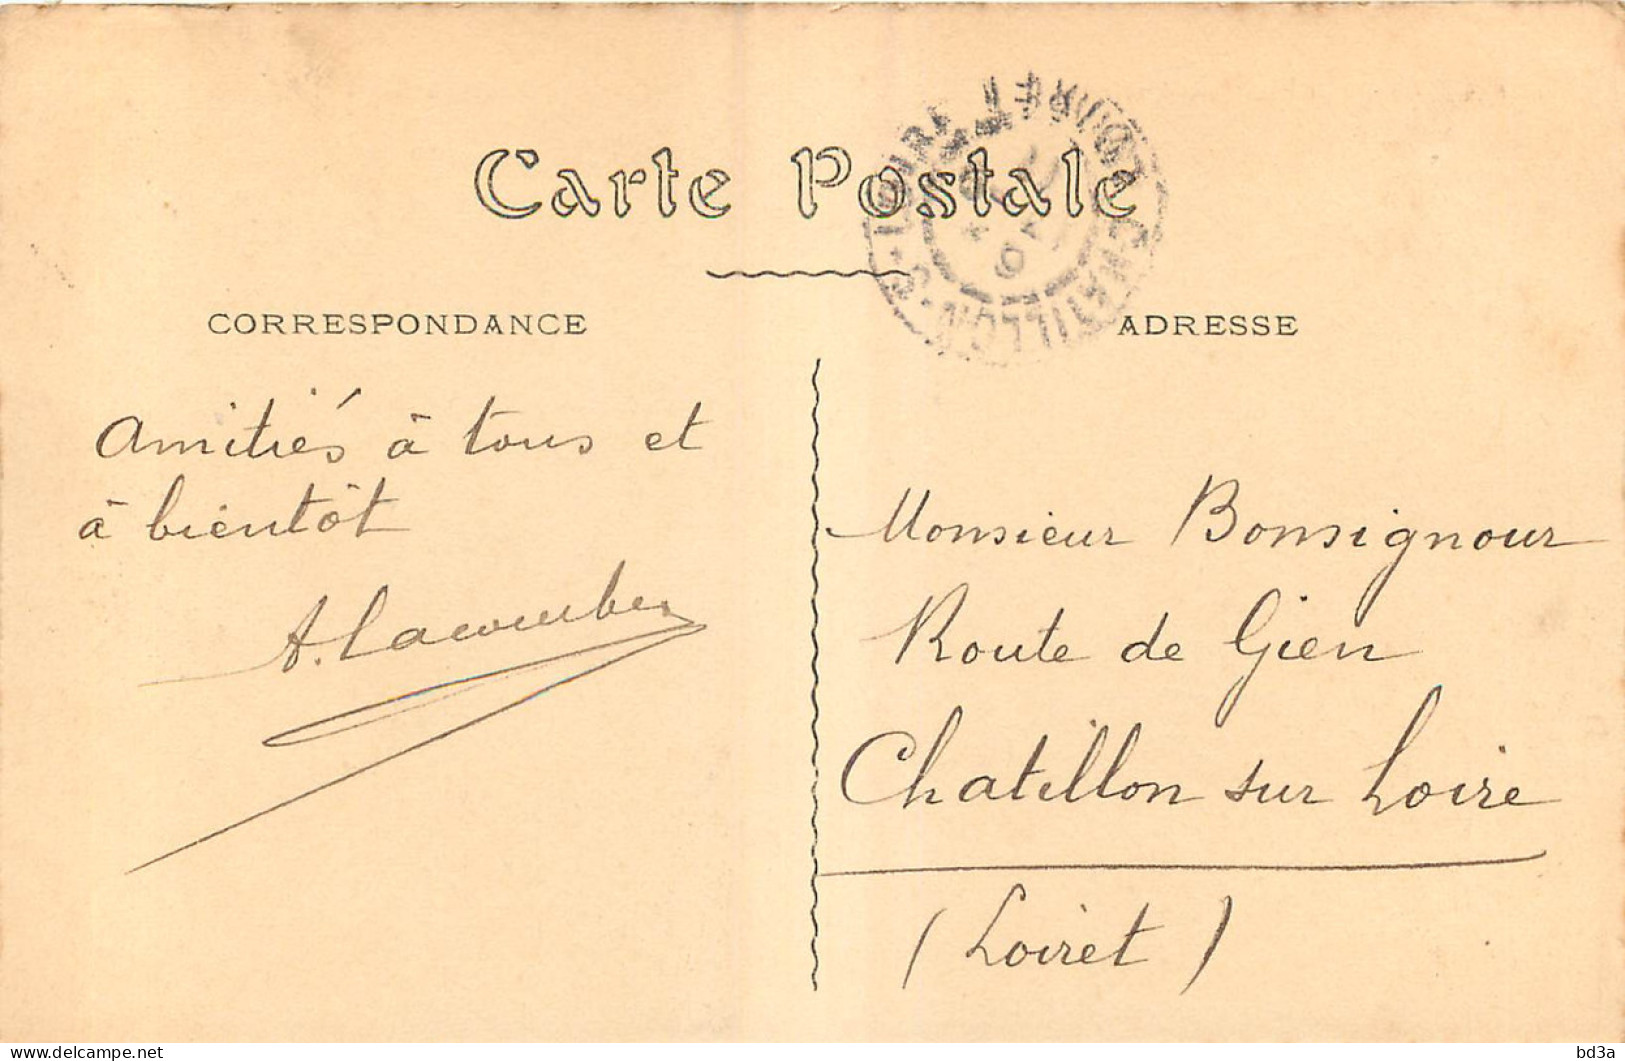 Carte Postale
CORRESPONDANCE
Amitiés à tous et
à bientôt
A. Lacombe
ADRESSE
Monsieur Bonsignour
Route de Gien
Chatillon sur Loire
(Loiret)
CHATILLON-S-LOIRE LOIRET
delcampe.net
bd3a